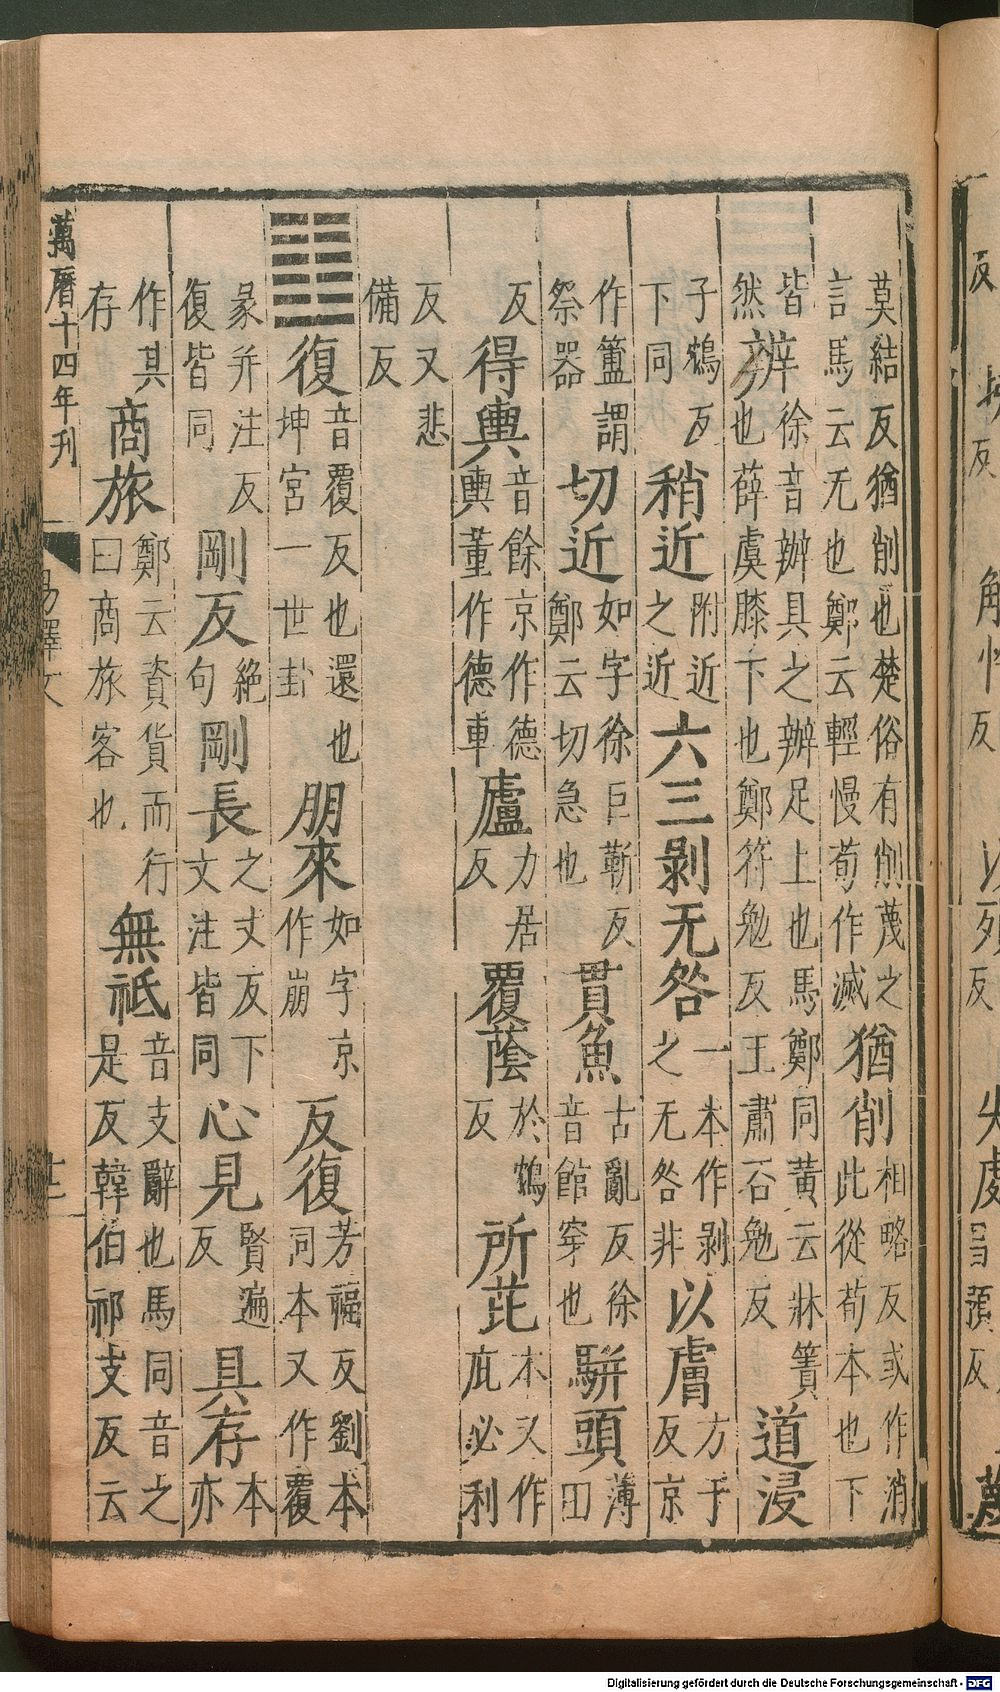 莫結反猶削也楚俗有削蔑之言馬云无也鄭云輕慢荀作滅猶削相略反或作消此從荀本也下
皆然辨徐音辦具之辦足上也馬鄭同黃云牀簀也薛虞膝下也鄭符勉反王肅否勉反道浸
子鴆反下同稍近附近之近六三剝无咎一本作剝之无咎非以膚方于反京
作簠謂祭器切近如字徐巨靳反鄭云切急也貫魚古亂反徐音館穿也駢頭薄田
反得輿音餘京作德輿董作德車廬力居反覆蔭於鴆反所芘本又作庇必利
反又悲備反
復音覆反也還也坤宮一世卦朋來如字京作崩反復芳福反劉本同本又作覆
彖并注反復皆同剛反絕句剛長之丈反下文注皆同心見賢遍反具存本亦
作其存商旅鄭云資貨而行曰商旅客也無祗音支辭也馬同音之是反韓伯祁支反云
萬曆十四年刊
易釋文
Digitalisierung gefördert durch die Deutsche Forschungsgemeinschaft - DFG